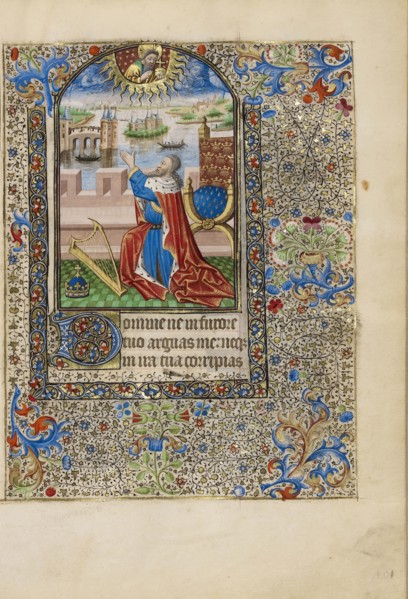 Domine ne in furore
tuo arguas me: neq
in ira tua corripias